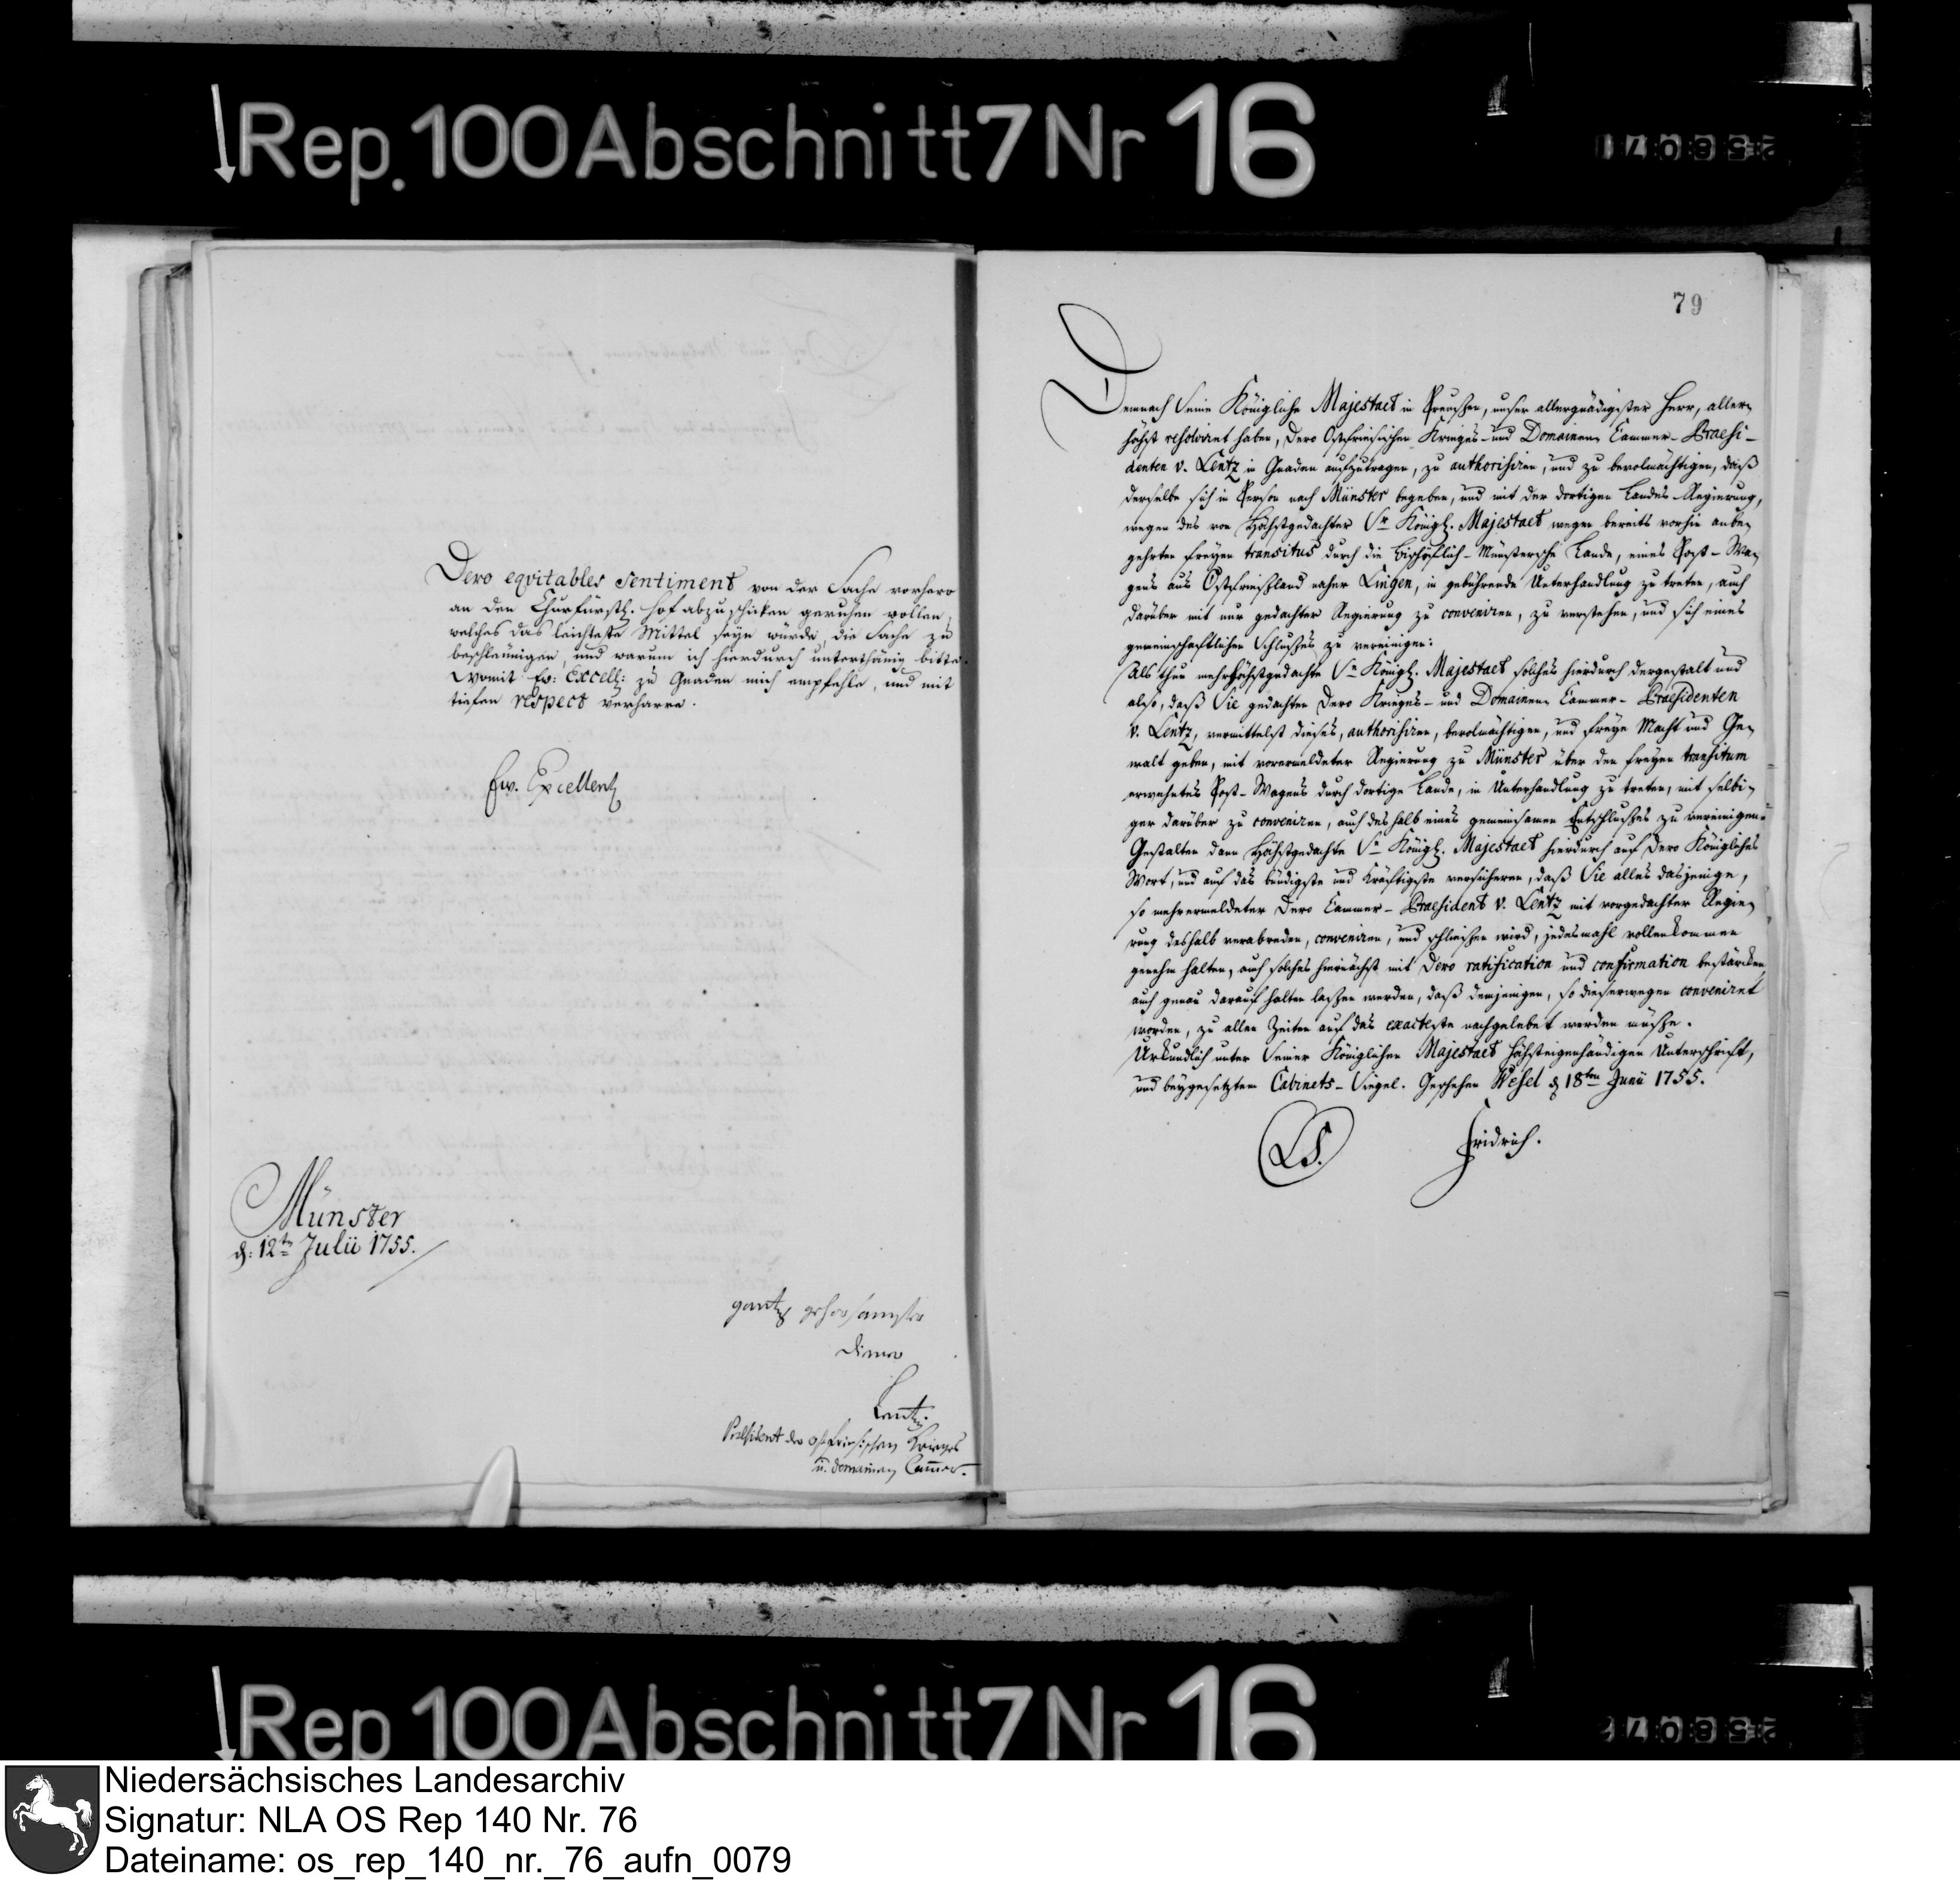 Rep. 100 Abschnitt 7 Nr 16
Dero eqvitables Sentiment von der Sache vorhero
an den Churfürstl. Hof abzuschicken geruhen wollen,
welches das leichteste Mittel seyn würde, die Sache zu
beschleünigen, und warum ich hierdurch unterthänig bitte.
Womit Ew: Excell: zu Gnaden mich empfehle, und mit
tiefen respect verharre.
Ew. Excellentz
Münster
d: 12ten Julii 1755.
gantz gehorsamster
Diener
Lentz.
Præsident der ostfriesischen Krieges
u. domainen Cammer.
79
Demnach Seine Königliche Majestaet in Preußen, unser allergnädigster Herr, aller-
höchst resolviret haben, Dero Ostfriesischen Krieges- und Domainen-Cammer-Praesi-
denten v. Lentz in Gnaden aufzutragen, zu authorisiren, und zu bevolmächtigen, daß
derselbe sich in Person nach Münster begeben, und mit der dortigen Landes-Regierung,
wegen des von Höchstgedachter Sr. Königl. Majestaet wegen bereits vorhin anbe-
gehrten freyen transitus durch die Bischöflich-Münstersche Lande, eines Post-Wa-
gens aus Ostfrießland naher Lingen, in gebührende Unterhandlung zu treten, auch
darüber mit nur gedachter Regierung zu conveniren, zu verstehen, und sich eines
gemeinschaftlichen Schlußes zu vereinigen:
Als thun mehrhöchstgedachte Se Königl. Majestaet solches hierdurch dergestalt und
also, daß Sie gedachten Dero Krieges- und Domainen-Cammer-Praesidenten
v. Lentz, vermittelst dieses, authorisiren, bevolmächtigen, und freye Macht und Ge-
walt geben, mit vorermeldeter Regierung zu Münster über den freyen transitum
erwehntes Post-Wagens durch dortige Lande, in Unterhandlung zu treten, mit selbi-
ger darüber zu conveniren, auch deshalb eines gemeinsamen Entschlußes zu vereinigen.
Gestalten dann Höchstgedachte Se Königl. Majestaet hierdurch auf Dero Königliches
Wort, und auf das bündigste und kräftigste versicheren, daß Sie alles dasjenige,
so mehrermeldeter Dero Cammer-Praesident v. Lentz mit vorgedachter Regie-
rung deshalb verabreden, conveniren, und schließen wird, jedesmahl vollenkommen
genehm halten, auch solches hiernächst mit Dero ratification und confirmation bestärcken,
auch genau darauf halten laßen werden, daß demjenigen, so dieserwegen conveniret
worden, zu allen Zeiten auf das exacteste nachgelebet werden müße.
Urkundlich unter Seiner Königlichen Majestaet höchsteigenhändigen Unterschrift,
und beygesetztem Cabinets-Siegel. Geschehen Wesel d 18ten Junii 1755.
LS.
Fridrich.
Rep 100 Abschnitt 7 Nr 16
Niedersächsisches Landesarchiv
Signatur: NLA OS Rep 140 Nr. 76
Dateiname: os_rep_140_nr._76_aufn_0079